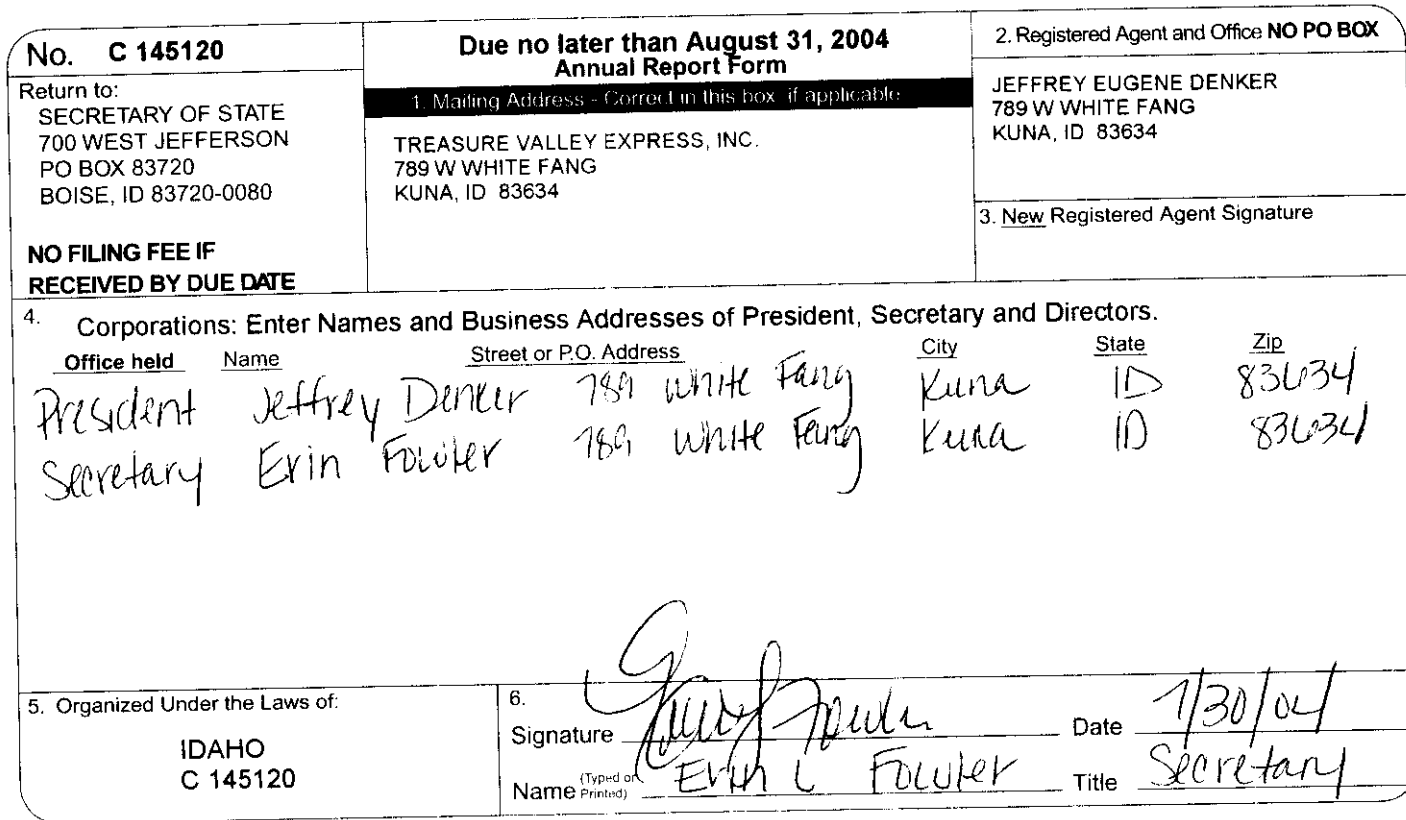 No. C 145120
Return to:
SECRETARY OF STATE
700 WEST JEFFERSON
PO BOX 83720
BOISE, ID 83720-0080
NO FILING FEE IF
RECEIVED BY DUE DATE
Due no later than August 31, 2004
Annual Report Form
1. Mailing Address - Correct in this box if applicable
TREASURE VALLEY EXPRESS, INC.
789 W WHITE FANG
KUNA, ID 83634
2. Registered Agent and Office NO PO BOX
JEFFREY EUGENE DENKER
789 W WHITE FANG
KUNA, ID 83634
3. New Registered Agent Signature
4. Corporations: Enter Names and Business Addresses of President, Secretary and Directors.
Office held Name Street or P.O. Address City State Zip
President Jeffrey Denker 789 White Fang Kuna ID 83634
Secretary Erin Fowler 789 White Fang Kuna ID 83634
5. Organized Under the Laws of:
IDAHO
C 145120
6.
Signature Erin L Fowler Date 7/30/04
Name (Typed or Printed) Erin L Fowler Title Secretary